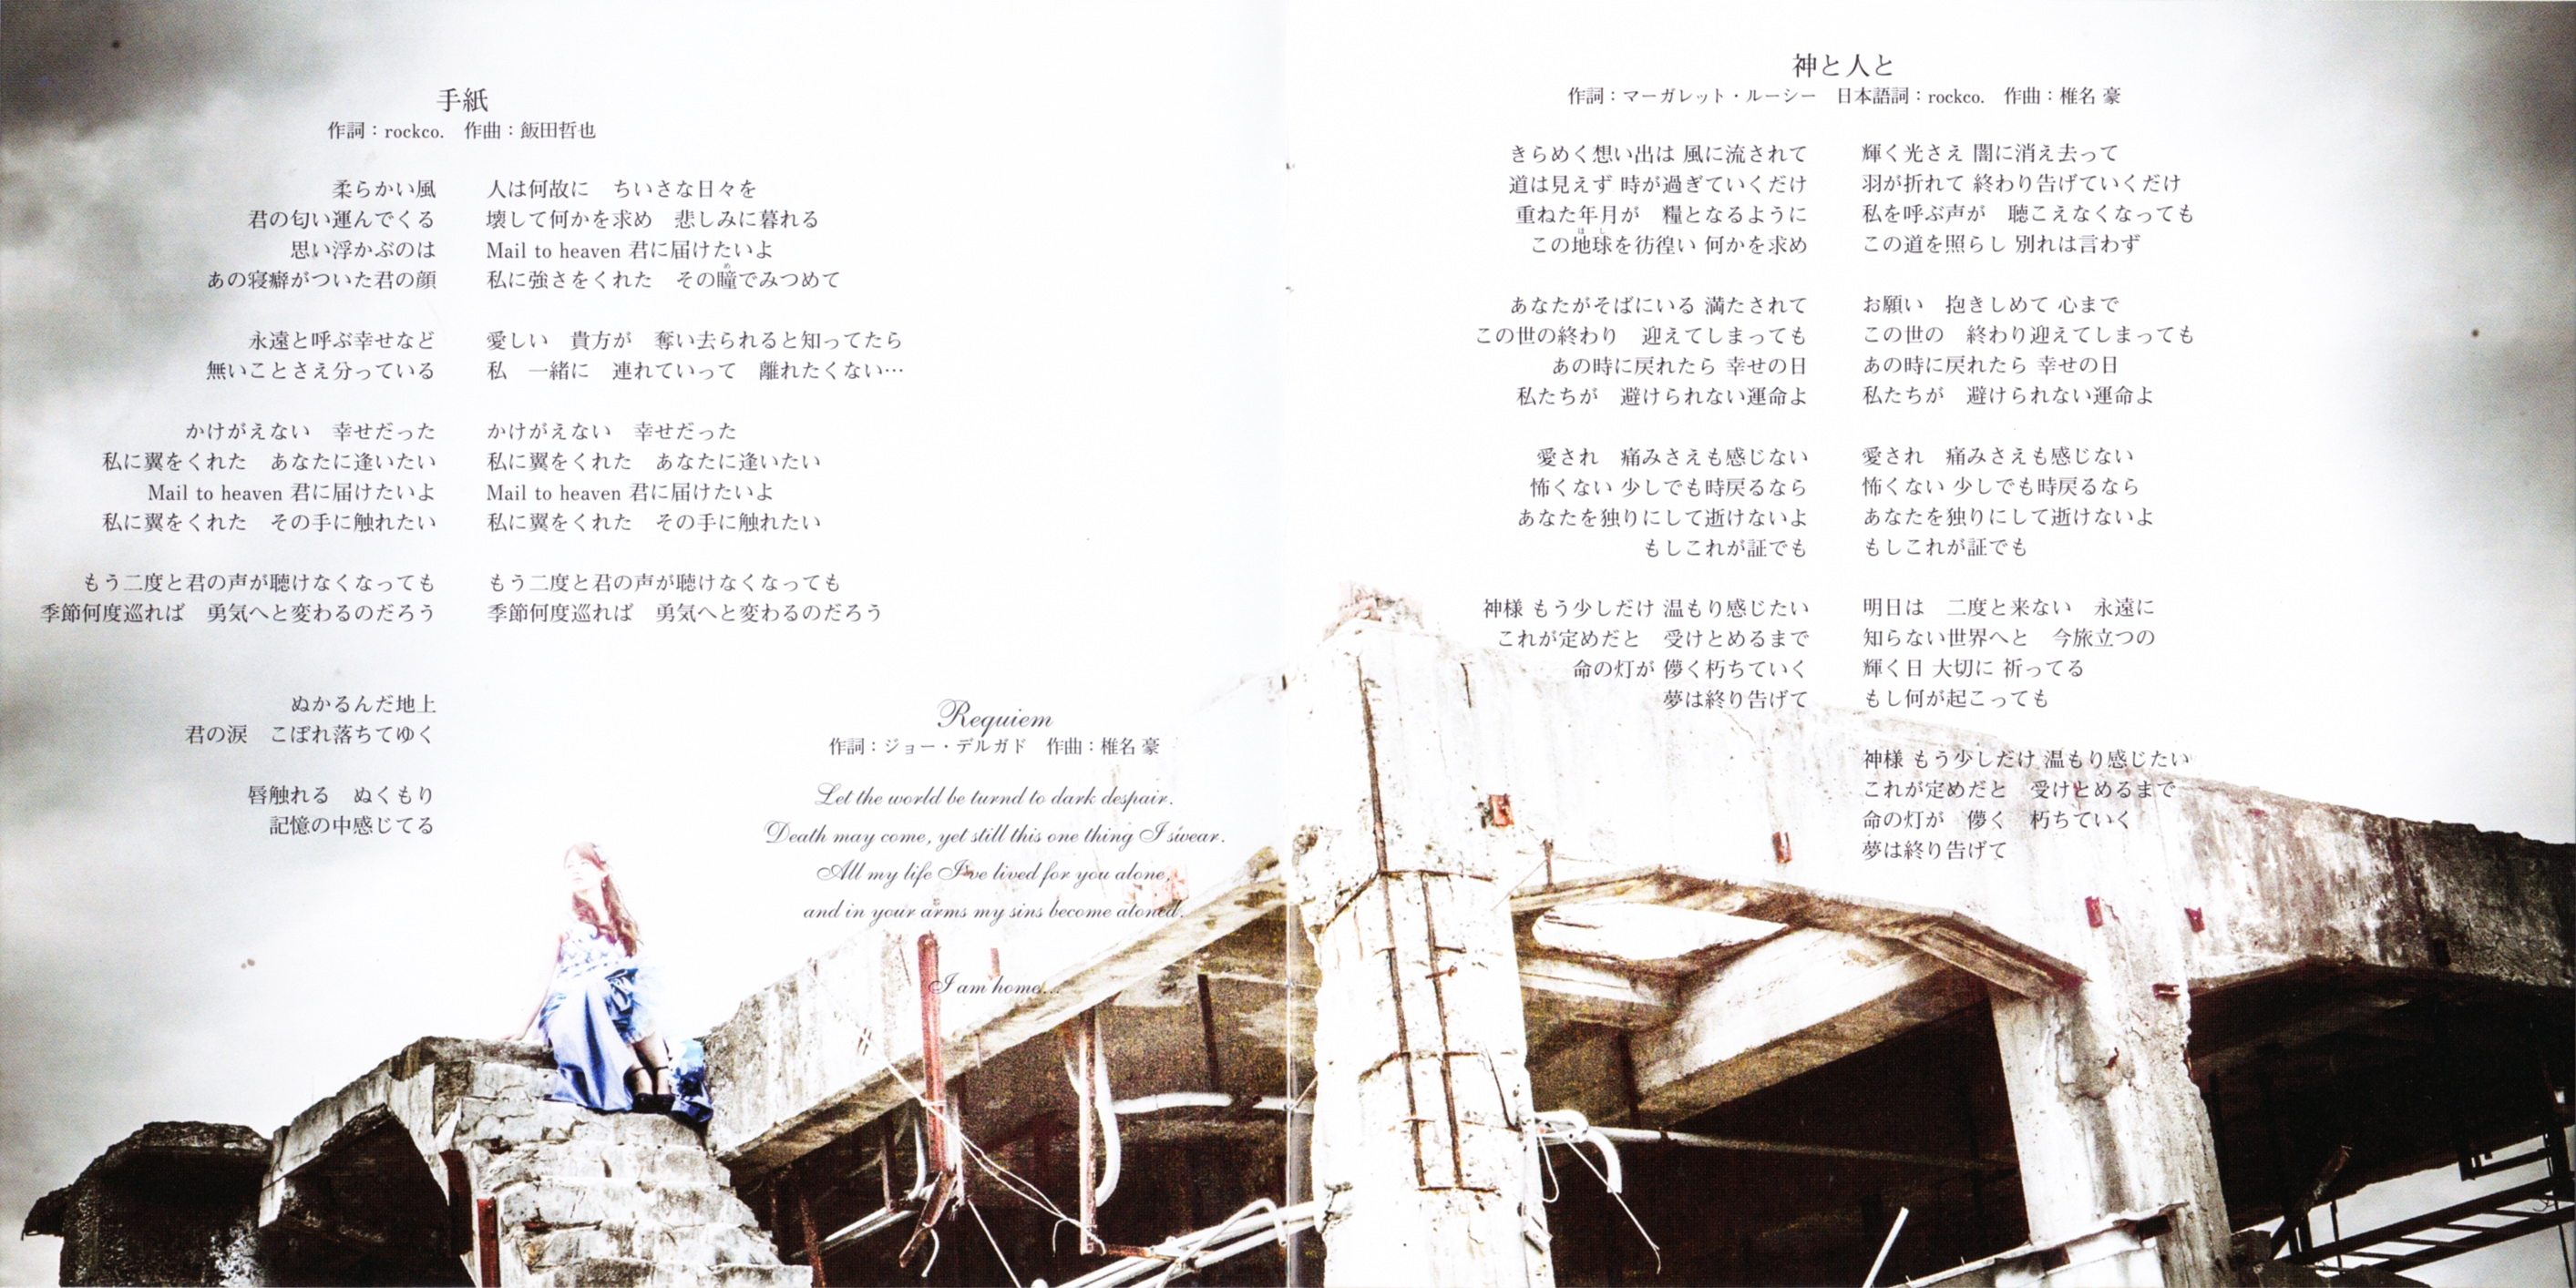 手紙
作詞：rockco.　作曲：飯田哲也
柔らかい風
君の匂い運んでくる
思い浮かぶのは
あの寝癖がついた君の顔
永遠と呼ぶ幸せなど
無いことさえ分っている
かけがえない　幸せだった
私に翼をくれた　あなたに逢いたい
Mail to heaven 君に届けたいよ
私に翼をくれた　その手に触れたい
もう二度と君の声が聴けなくなっても
季節何度巡れば　勇気へと変わるのだろう
ぬかるんだ地上
君の涙　こぼれ落ちてゆく
唇触れる　ぬくもり
記憶の中感じてる
人は何故に　ちいさな日々を
壊して何かを求め　悲しみに暮れる
Mail to heaven 君に届けたいよ
め
私に強さをくれた　その瞳でみつめて
愛しい　貴方が　奪い去られると知ってたら
私　一緒に　連れていって　離れたくない…
かけがえない　幸せだった
私に翼をくれた　あなたに逢いたい
Mail to heaven 君に届けたいよ
私に翼をくれた　その手に触れたい
もう二度と君の声が聴けなくなっても
季節何度巡れば　勇気へと変わるのだろう
Requiem
作詞：ジョー・デルガド　作曲：椎名 豪
Let the world be turnd to dark despair.
Death may come, yet still this one thing I swear.
All my life I've lived for you alone,
and in your arms my sins become atoned.
I am home...
神と人と
作詞：マーガレット・ルーシー　日本語詞：rockco.　作曲：椎名 豪
きらめく想い出は 風に流されて
道は見えず 時が過ぎていくだけ
重ねた年月が　糧となるように
ほし
この地球を彷徨い 何かを求め
あなたがそばにいる 満たされて
この世の終わり　迎えてしまっても
あの時に戻れたら 幸せの日
私たちが　避けられない運命よ
愛され　痛みさえも感じない
怖くない 少しでも時戻るなら
あなたを独りにして逝けないよ
もしこれが証でも
神様 もう少しだけ 温もり感じたい
これが定めだと　受けとめるまで
命の灯が 儚く朽ちていく
夢は終り告げて
輝く光さえ 闇に消え去って
羽が折れて 終わり告げていくだけ
私を呼ぶ声が　聴こえなくなっても
この道を照らし 別れは言わず
お願い　抱きしめて 心まで
この世の　終わり迎えてしまっても
あの時に戻れたら 幸せの日
私たちが　避けられない運命よ
愛され　痛みさえも感じない
怖くない 少しでも時戻るなら
あなたを独りにして逝けないよ
もしこれが証でも
明日は　二度と来ない　永遠に
知らない世界へと　今旅立つの
輝く日 大切に 祈ってる
もし何が起こっても
神様 もう少しだけ 温もり感じたい
これが定めだと　受けとめるまで
命の灯が　儚く　朽ちていく
夢は終り告げて